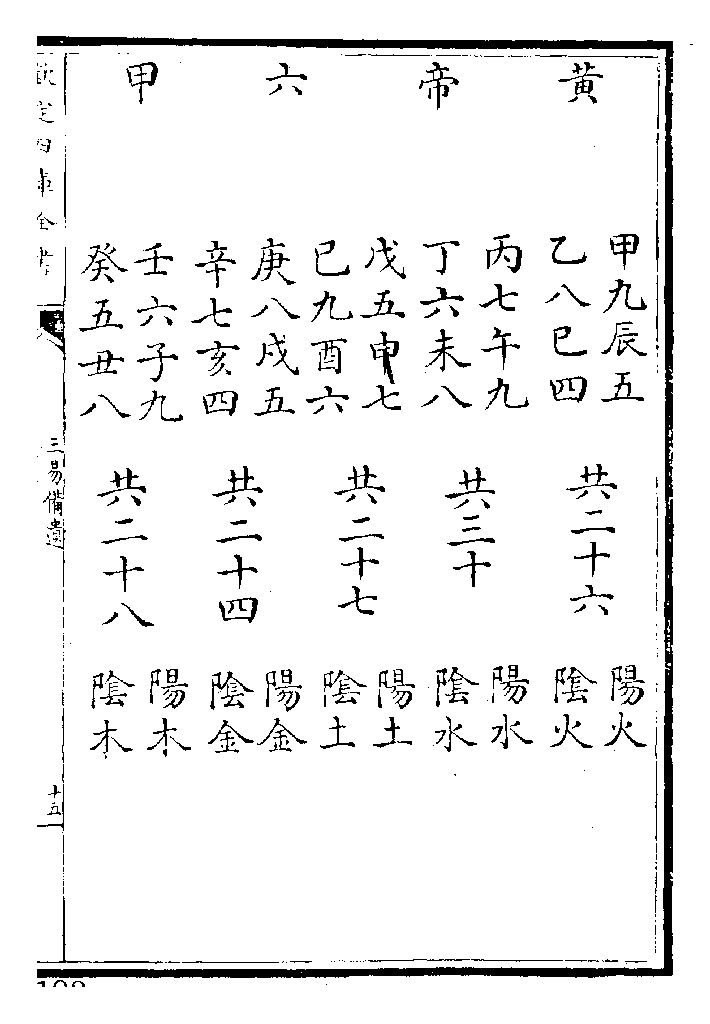 黄帝六甲
甲九辰五
乙八巳四
共二十六
陽火
陰火
丙七午九
丁六未八
共三十
陽水
陰水
戊五申七
巳九酉六
共二十七
陽土
陰土
庚八戌五
辛七亥四
共二十四
陽金
陰金
壬六子九
癸五丑八
共二十八
陽木
陰木
欽定四庫全書
三易備遺
十五